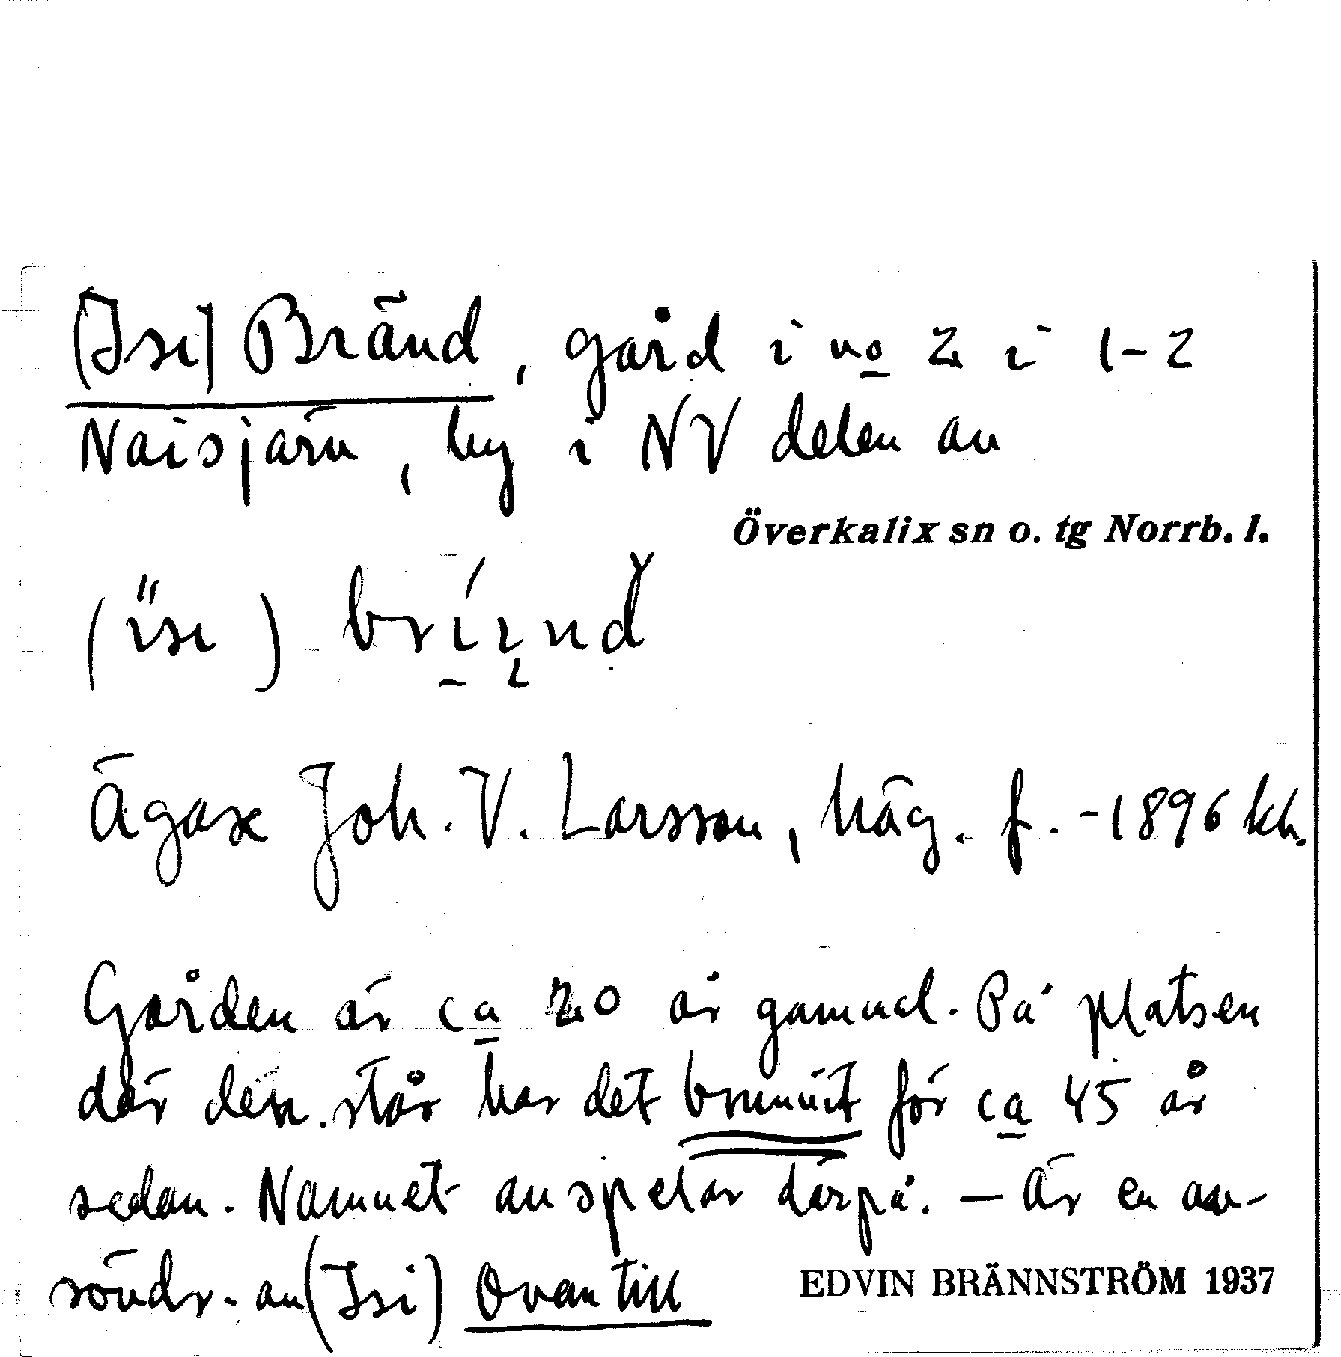 (Isi) Bränd, gård i no 2 i 1-2
Naisjärv, by i NV delen av
Överkalix sn o. tg Norrb. l.
(isi)
Ägare Joh. V. Larsson, häg. f. -1896 kh.
Gården är ca 20 år gammal. På platsen
där den står har det brunnit för ca 45 år
sedan. Namnet anspelar därpå. — Är en av-
söndr. av (Isi) Ovantill
EDVIN BRÄNNSTRÖM 1937